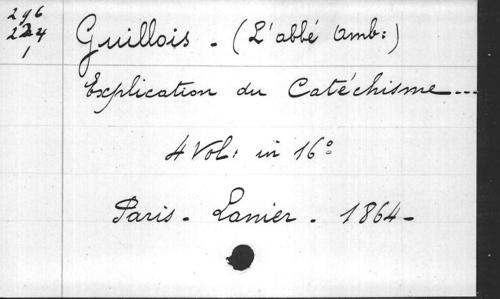 246
224
1
Guillois - (L'abbé Amb:)
Explication du Catéchisme ---
4 Vol: in 16°
Paris - Lanier - 1864 -